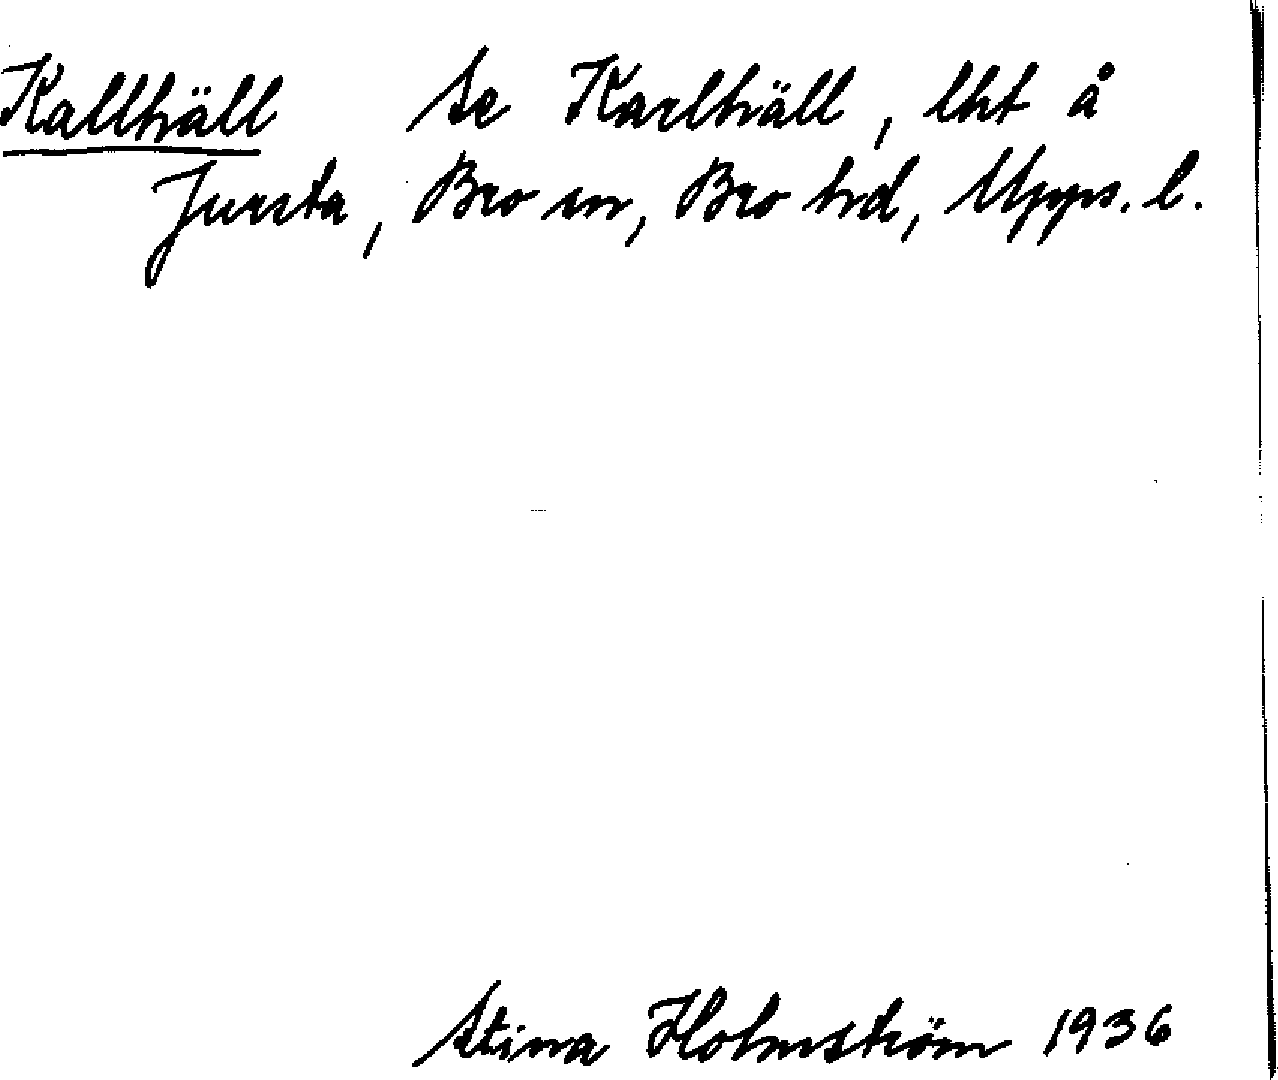 Kallhäll Se Karlhäll, lht å
Jursta, Bro sn, Bro hd, Upps. l.
Stina Holmström 1936